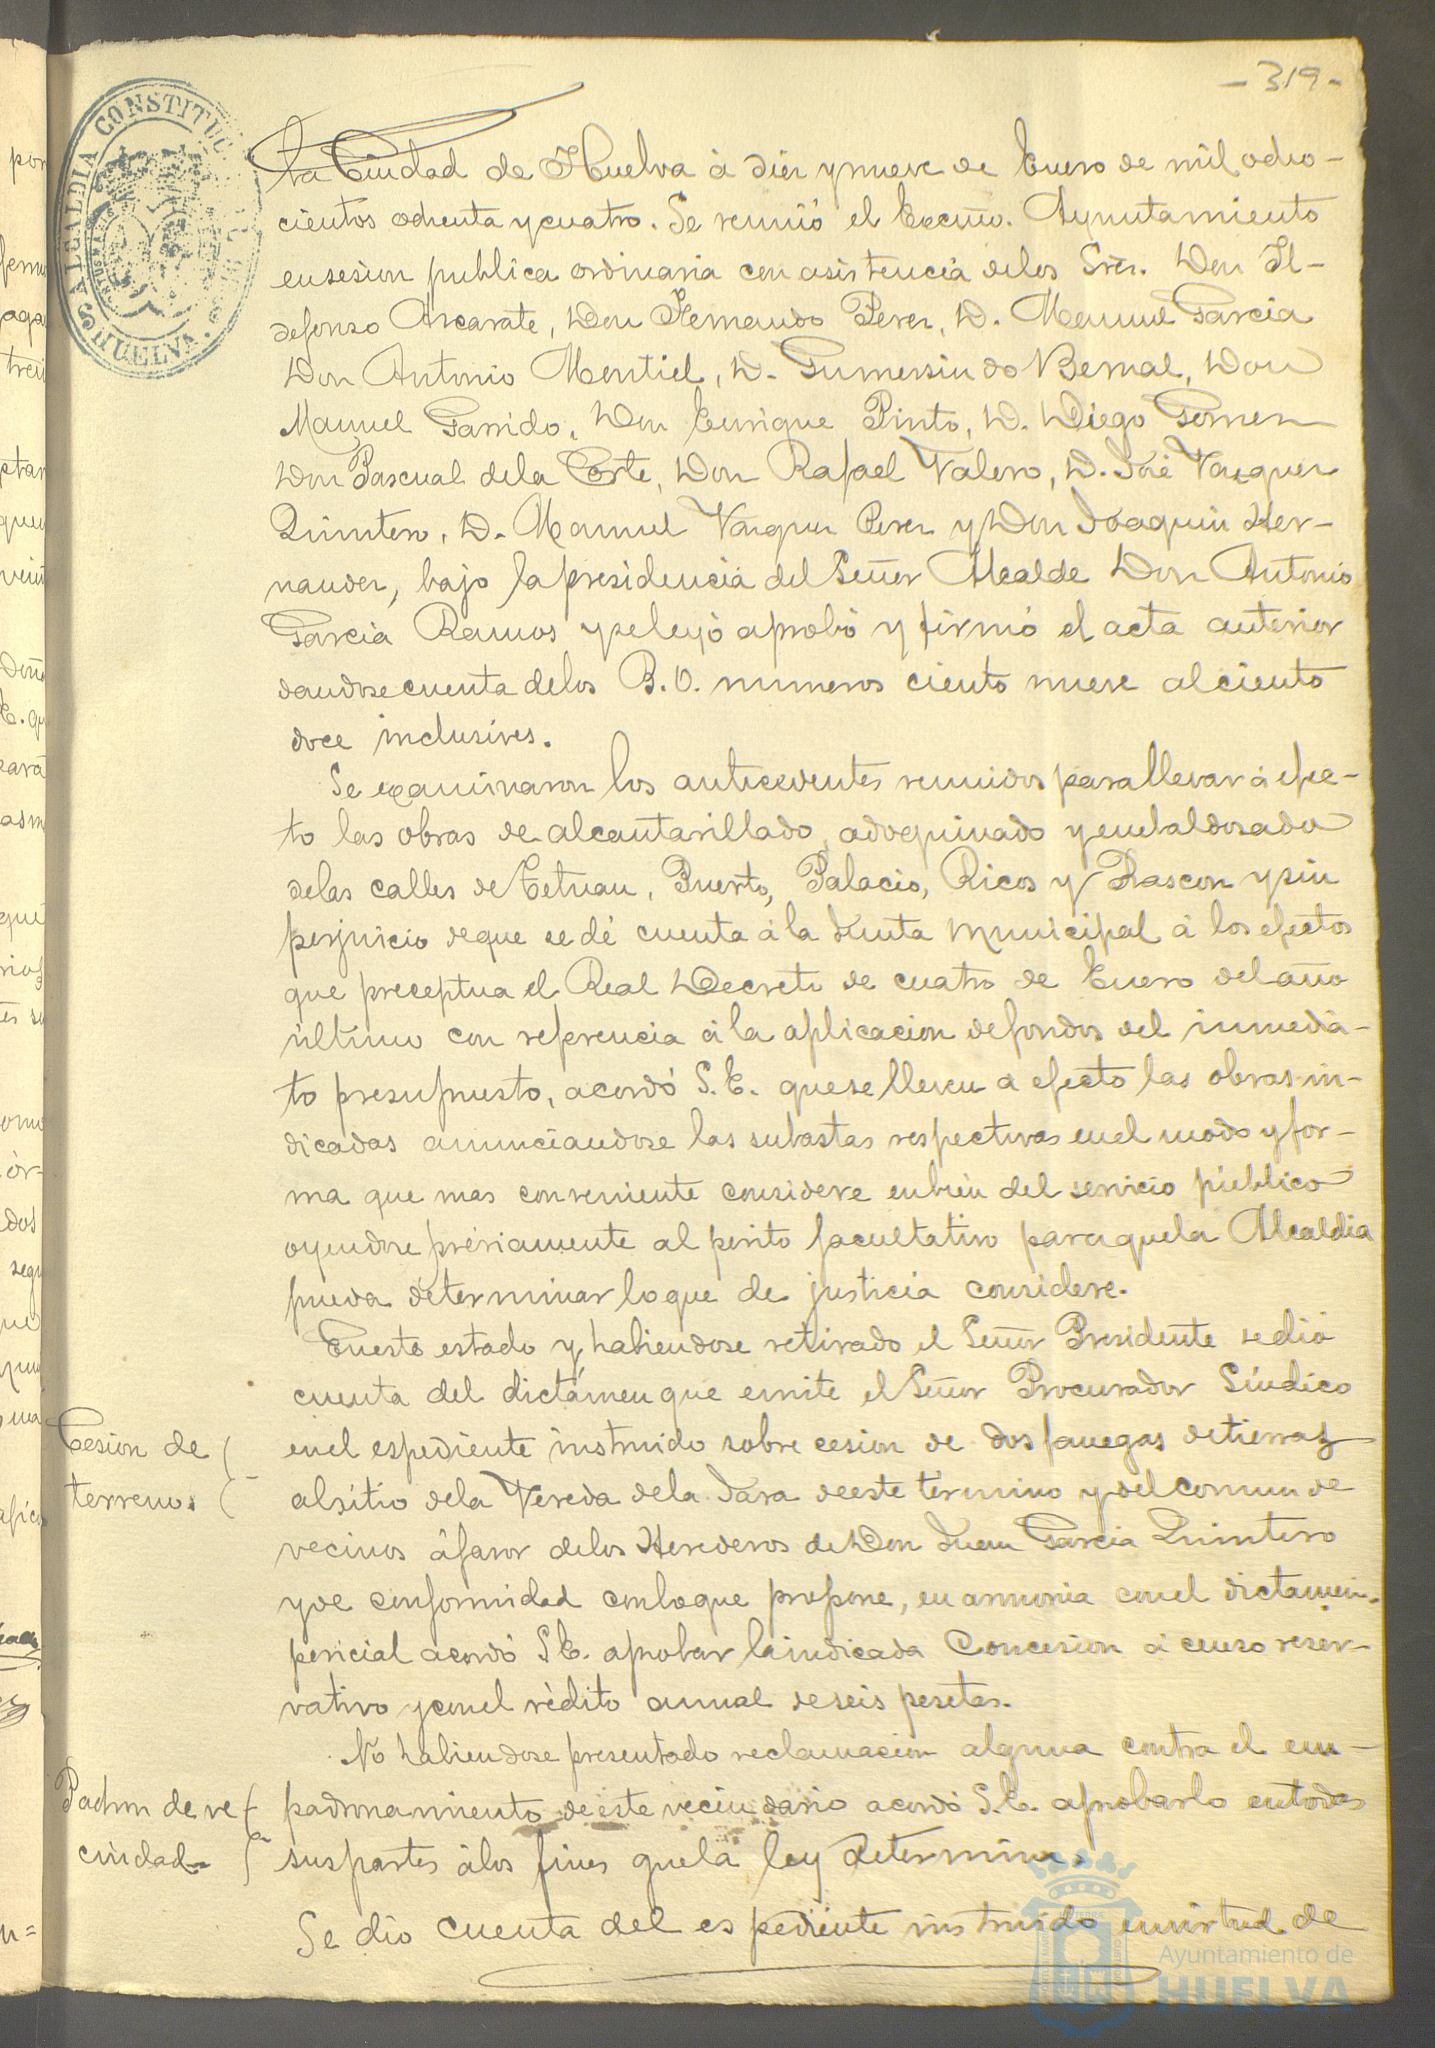 - 319 -
ALCALDIA CONSTITUC
HUELVA.
la Ciudad de Huelva á diez y nueve de Enero de mil ocho-
cientos ochenta y cuatro. Se reunió el Excmo. Ayuntamiento
en sesion publica ordinaria con asistencia de los Sres. Don Il-
defonso Ascarate, Don Fernando Perez, D. Manuel Garcia
Don Antonio Montiel, D. Gumersindo Bernal, Don
Manuel Garrido, Don Enrique Pinto, D. Diego Gomez
Don Pascual de la Corte, Don Rafael Valero, D. José Vazquez
Quintero, D. Manuel Vazquez Perez y Don Joaquin Her-
nandez, bajo la presidencia del Señor Alcalde Don Antonio
Garcia Ramos y se leyó aprobó y firmó el acta anterior
dandose cuenta de los B. O. numeros ciento nueve al ciento
doce inclusives.
Se examinaron los antecedentes reunidos para llevar á efec-
to las obras de alcantarillado, adoquinado y enbaldosado
de las calles de Tetuan, Puerto, Palacio, Ricos y Rascon y sin
perjuicio de que se dé cuenta á la Junta Municipal á los efectos
que preceptua el Real Decreto de cuatro de Enero del año
último con referencia á la aplicacion de fondos del inmedia-
to presupuesto, acordó S. E. que se lleven a efecto las obras in-
dicadas anunciandose las subastas respectivas en el modo y for-
ma que mas conveniente considere en bien del servicio público
oyendose préviamente al perito facultativo para que la Alcaldia
pueda determinar lo que de justicia considere.
En este estado y habiendose retirado el Señor Presidente se dió
cuenta del dictámen que emite el Señor Procurador Síndico
Cesion de
terrenos
en el espediente instruido sobre cesion de dos fanegas de tierras
al sitio de la Vereda de la Jara de este termino y del comun de
vecinos á favor de los Herederos de Don Juan Garcia Quintero
y de conformidad con lo que propone, en armonia con el dictamen
pericial acordó S. E. aprobar la indicada Concesion á censo reser-
vativo y con el rédito anual de seis pesetas.
No habiendose presentado reclamacion alguna contra el em-
Padron de ve
cindad
padronamiento de este vecindario acordó S. E. aprobarlo en todas
sus partes á los fines que la ley determina.
Se dió cuenta del espediente instruido en virtud de
Ayuntamiento de
HUELVA